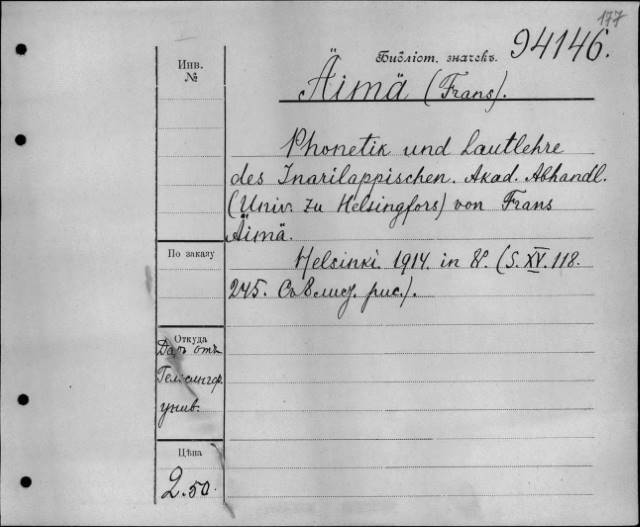 177
Библіот. значекъ. 94146.
Инв.
№
Äimä (Frans).
Phonetik und Lautlehre
des Inarilappischen. Akad. Abhandl.
(Univ. zu Helsingfors) von Frans
Äimä.
По заказу
Helsinki. 1914. in 8°. (S. XV. 118.
245. Съ 8 лист. рис.).
Откуда
Даръ отъ
Гельсингф.
унив.
Цѣна
2.50.